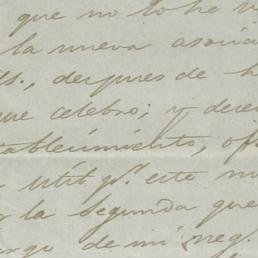 que no lo he
la nueva asocia
ls., despues de h
que celebro; y dese
tablecimiento, of
util pr. este
r la segunda que
argo de mi neg.